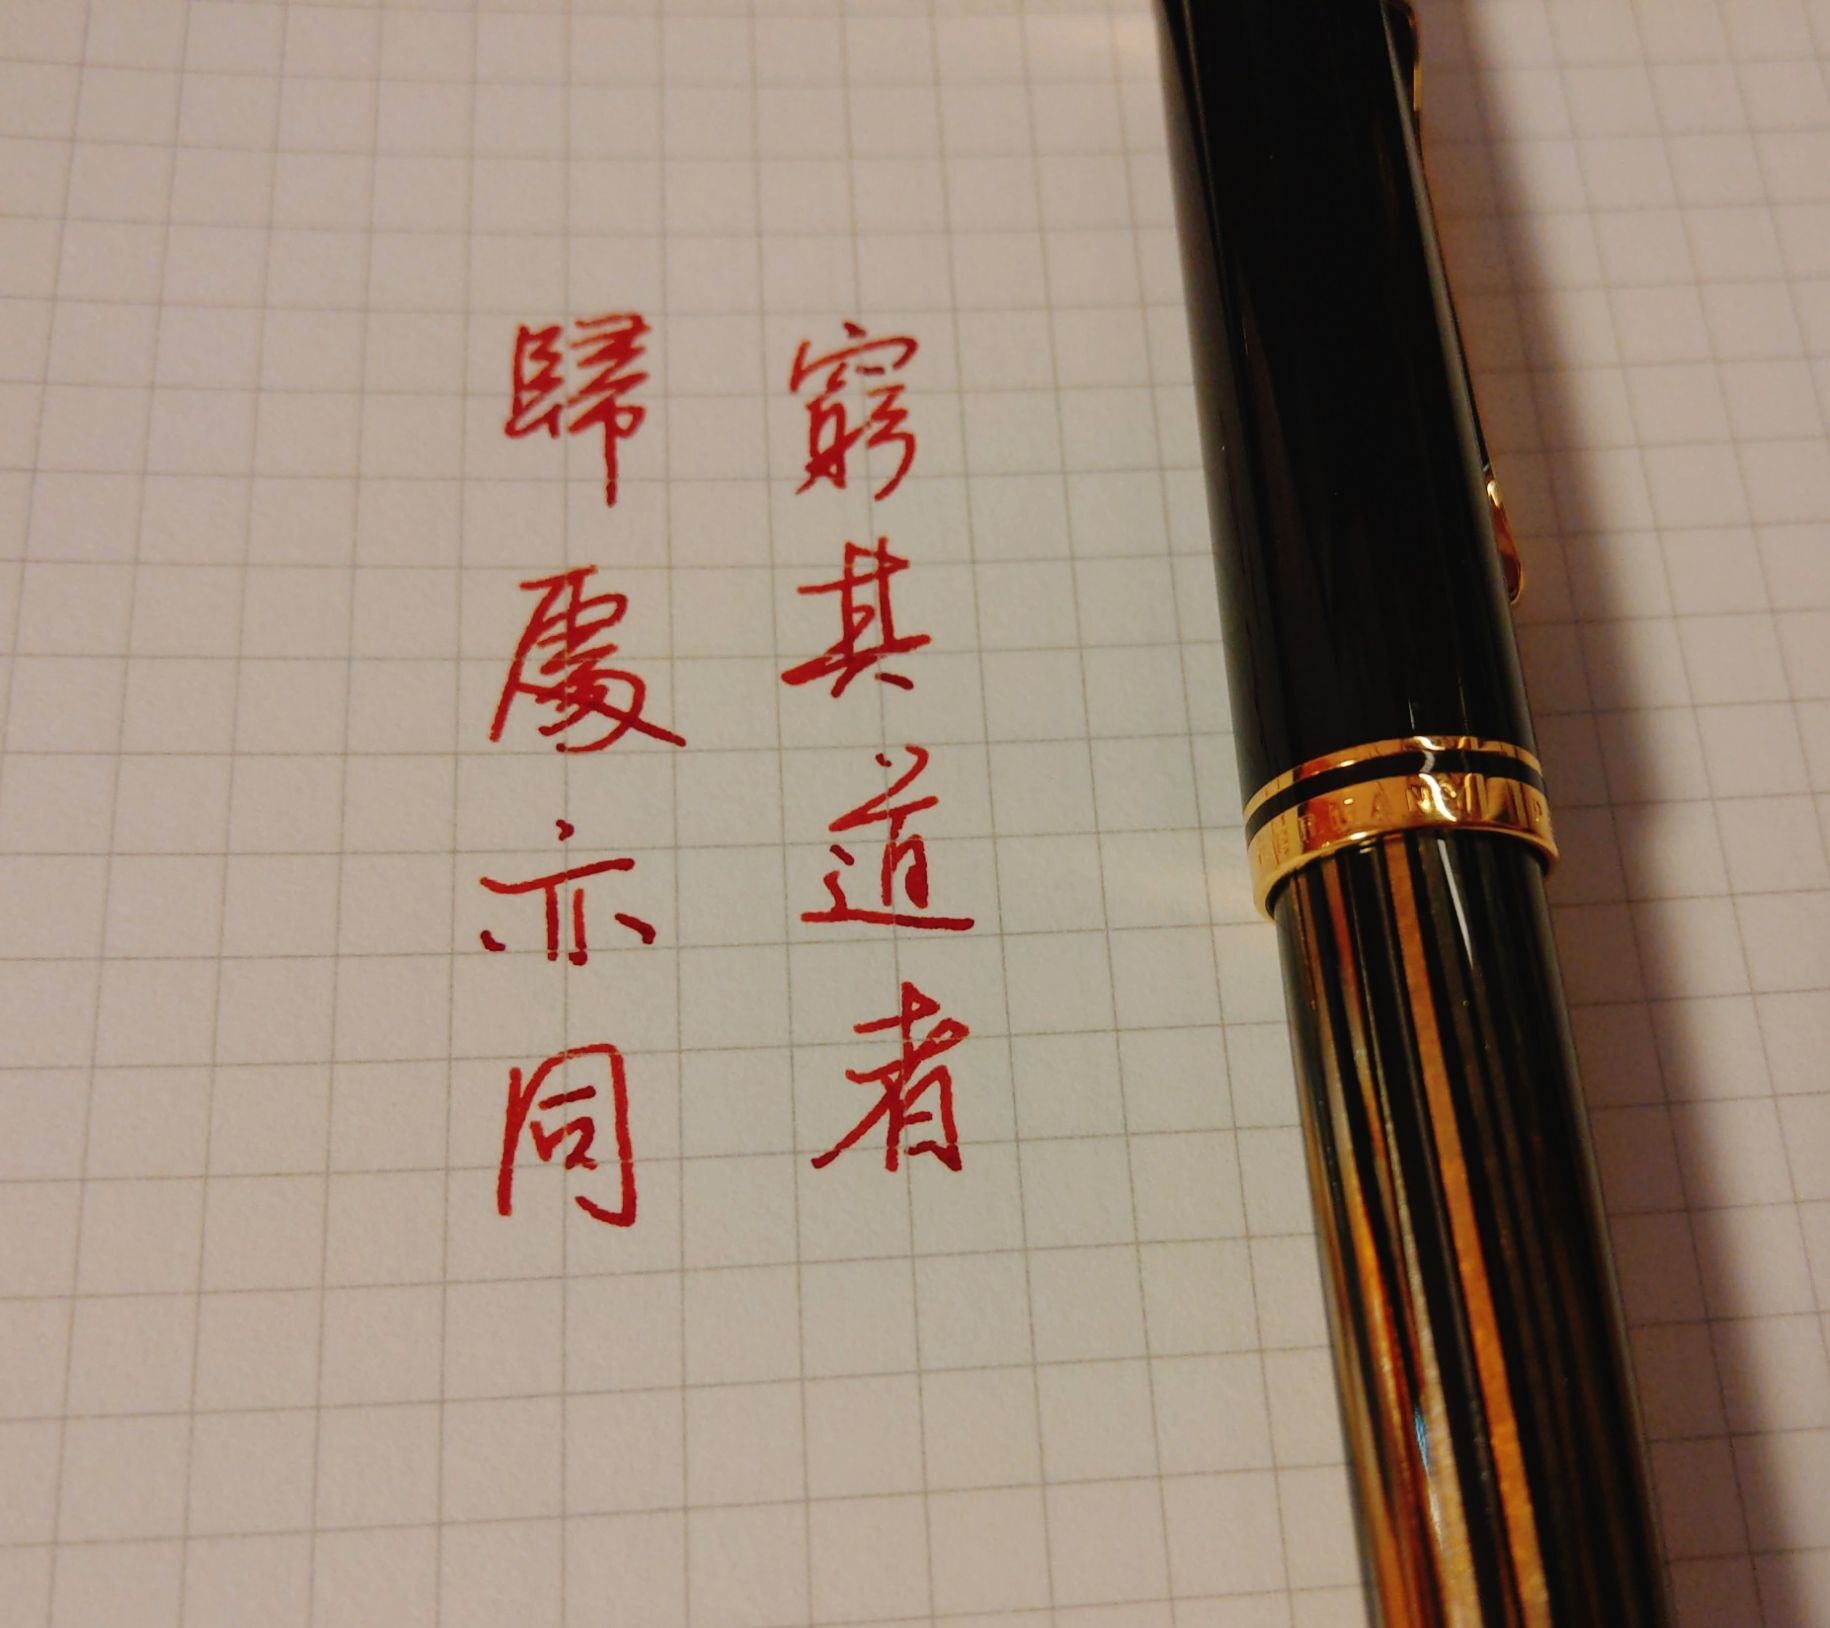 窮其道者
歸處亦同